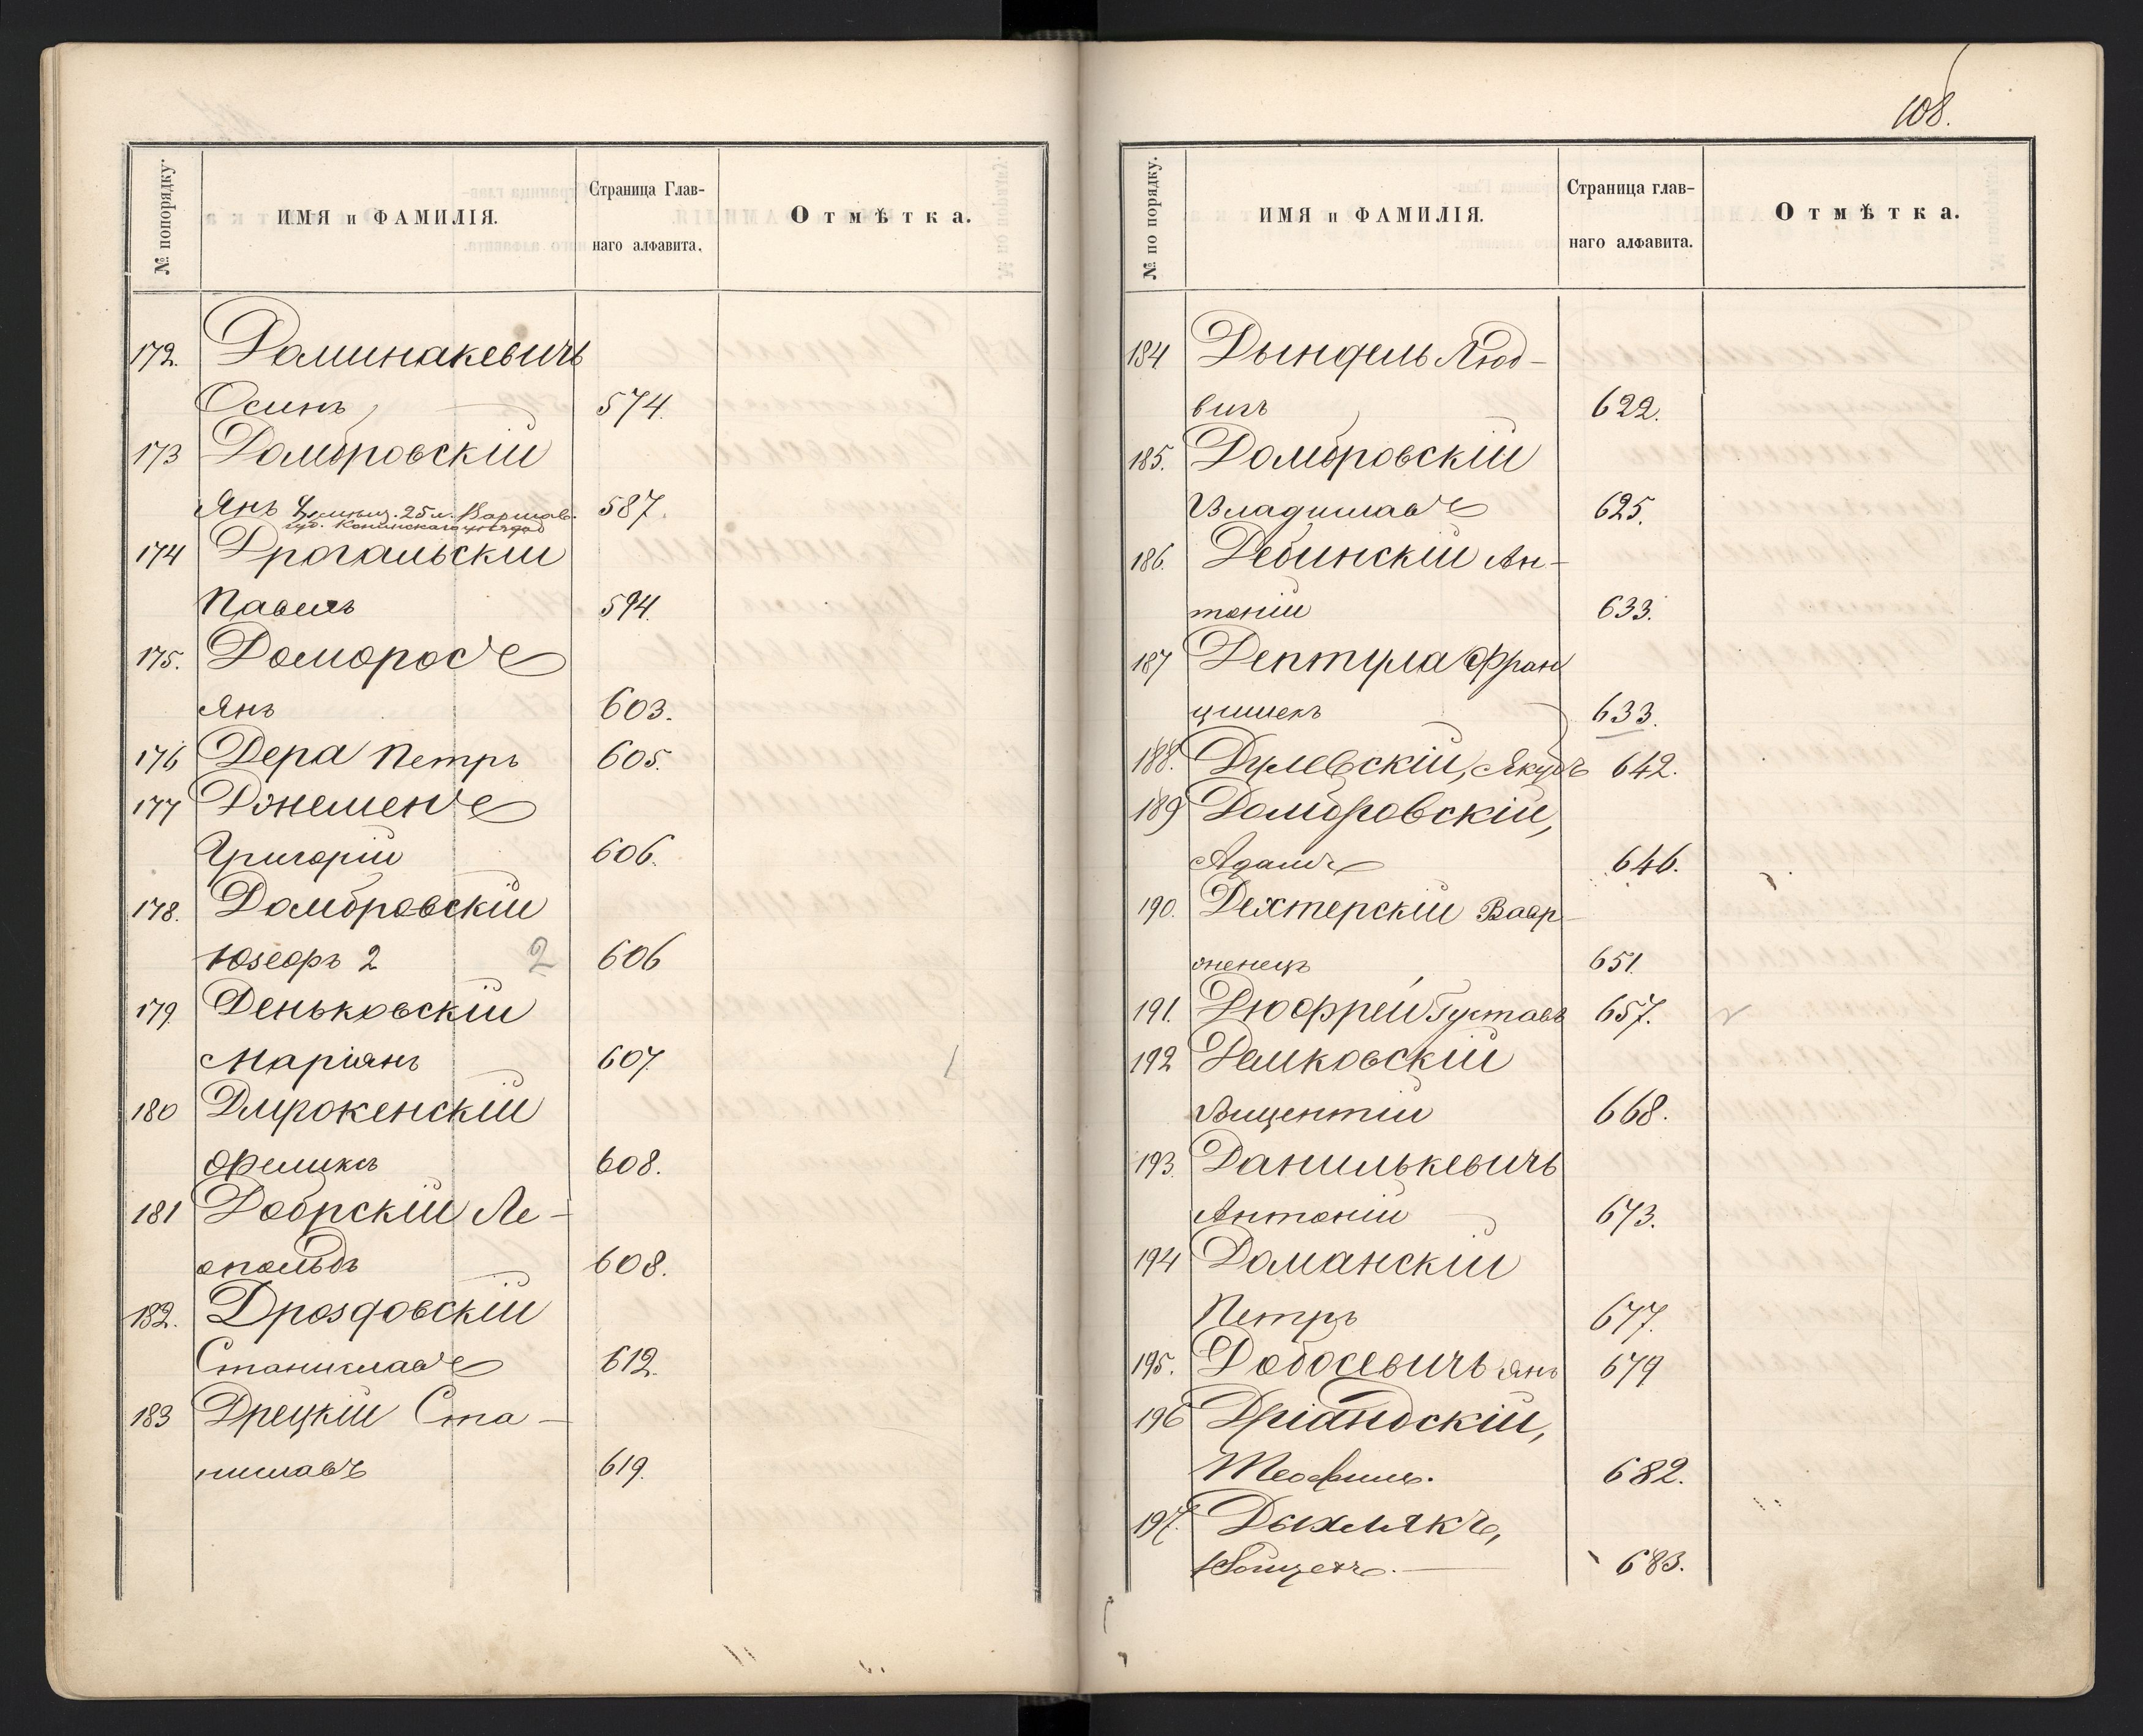 № попорядку.
ИМЯ и ФАМИЛІЯ.
Страница Глав-
наго алфавита.
Отмѣтка.
172. Доминакевичъ
Осипъ 574.
173 Домбровскій
Янъ 25 л. Варшав. 587.
губ. Конинскаго уѣзда
174 Дрогальскій
Павелъ 594.
175. Доморосъ
Янъ 603.
176 Дера Петръ 605.
177 Джеменъ
Григорій 606.
178. Домбровскій
Юзефъ 2 2 606
179. Деньковскій
Маріянъ 607
180 Дмрокенскій
Феликсъ 608.
181 Добрскій Ле-
опольдъ 608.
182. Дроздовскій
Станиславъ 612.
183 Дрецкій Ста-
ниславъ 619.
108.
№ по порядку.
ИМЯ и ФАМИЛІЯ.
Страница глав-
наго алфавита.
Отмѣтка.
184 Дындель Люд-
вигъ 622.
185. Домбровскій
Владиславъ 625.
186. Дебинскій Ан-
тоній 633.
187 Дептула Фран
цишекъ 633.
188. Дулевскій, Якубъ 642.
189 Домбровскій,
Адамъ 646.
190. Дехтерскій Вавр-
женецъ 651.
191. Дюфрей Густавъ 657.
192 Демковскій
Вицентій 668.
193. Данилькевичъ
Антоній 673.
194 Доманскій
Петръ 677.
195. Добосевичъ Янъ 679
196
Теофилъ. 682.
197. Дыхлякъ,
Войцехъ. 683.